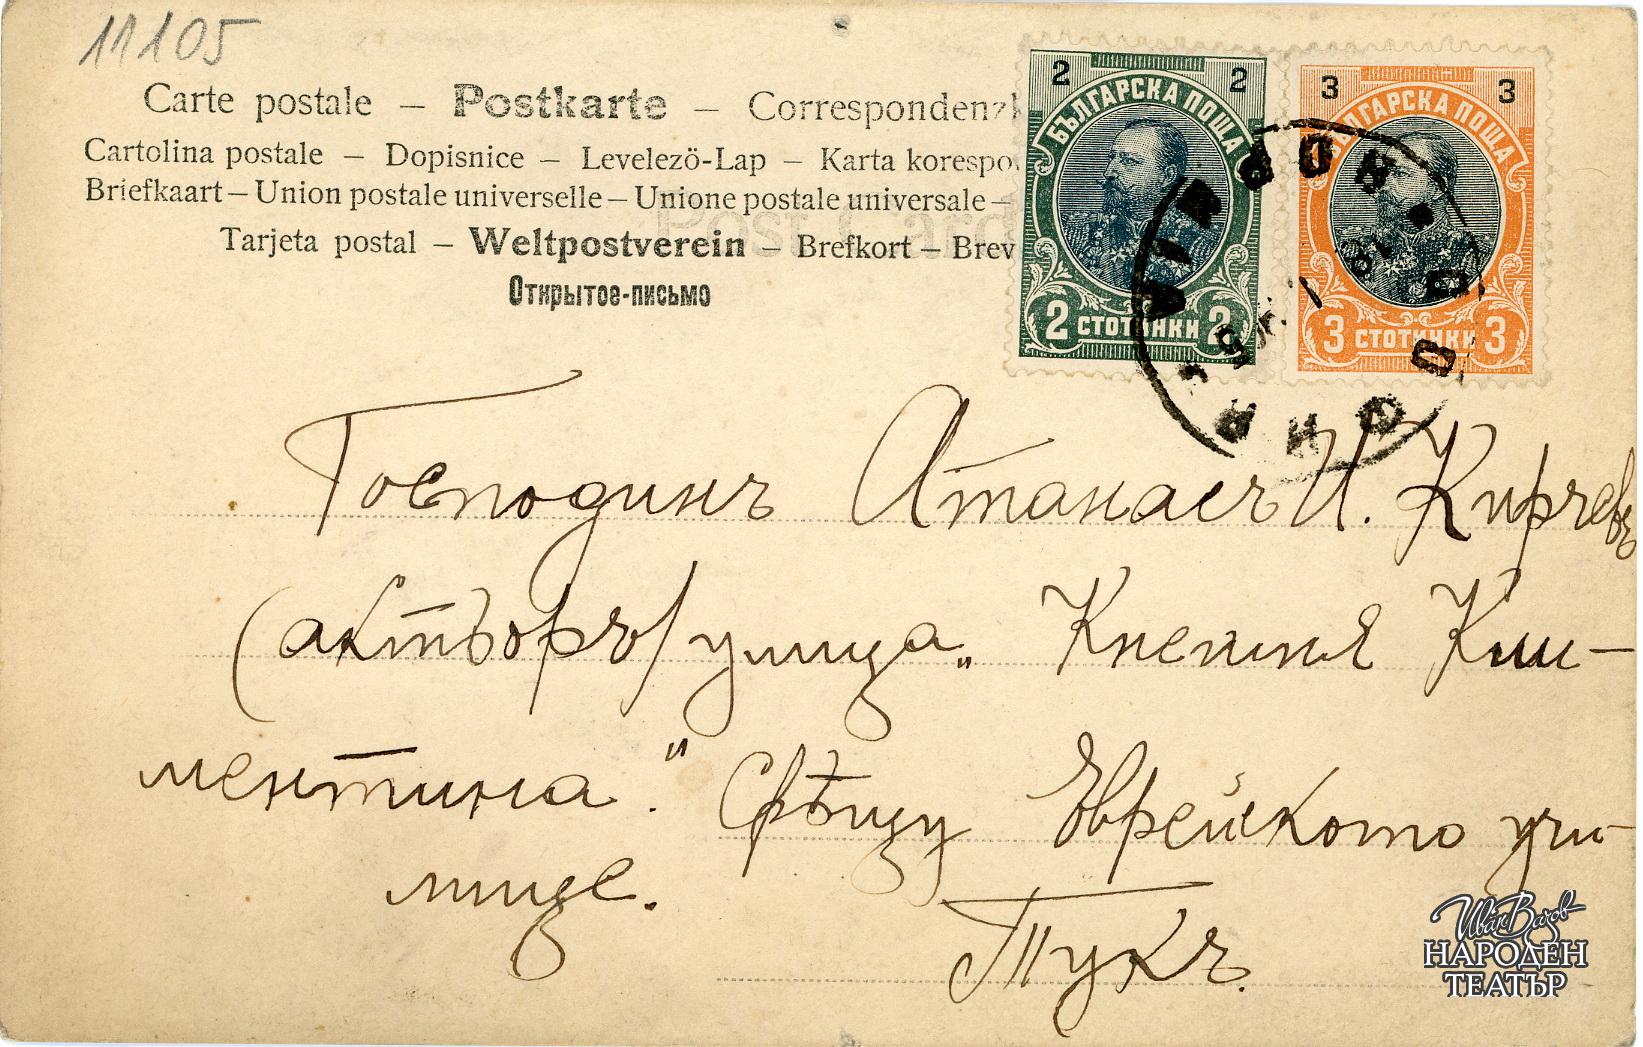 11105
Carte postale – Postkarte – Correspondenz
Cartolina postale – Dopisnice – Levelezö-Lap – Karta korespo
Briefkaart – Union postale universelle – Unione postale universale –
Post Card
Tarjeta postal – Weltpostverein – Brefkort – Brev
Открытое-письмо
2 2
БЪЛГАРСКА ПОЩА
2 СТОТИНКИ 2
3 3
БЪЛГАРСКА ПОЩА
3 СТОТИНКИ 3
Господинъ Атанасъ И. Кирчевъ
(актьоръ) улица „Княгиня Кли-
ментина". Срѣщу Еврейското учи-
лище.
Тукъ.
Иван Вазов
НАРОДЕН
ТЕАТЪР